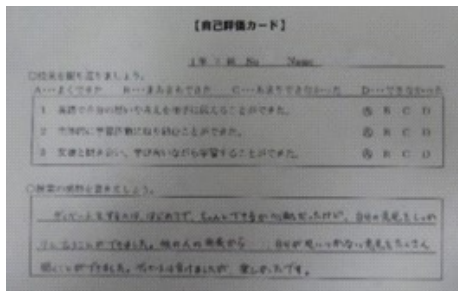 【自己評価カード】
1年 組 No Name
○授業を振り返りましょう。
A…よくできた B…まあまあできた C…あまりできなかった D…できなかった
1 英語で自分の想いや考えを相手に伝えることができた。 A B C D
2 学習活動に取り組むことができた。 A B C D
3 友達と助け合い、学び合いながら学習することができた。 A B C D
○授業の感想を書きましょう。
ディベートをするのは、はじめてで、ちゃんとできるか心配だったけど、自分の意見をしっか
ことができました。他の人の発表から 自分が思いつかない意見をたくさん
聞くことができました。 は負けましたが、楽しかったです。